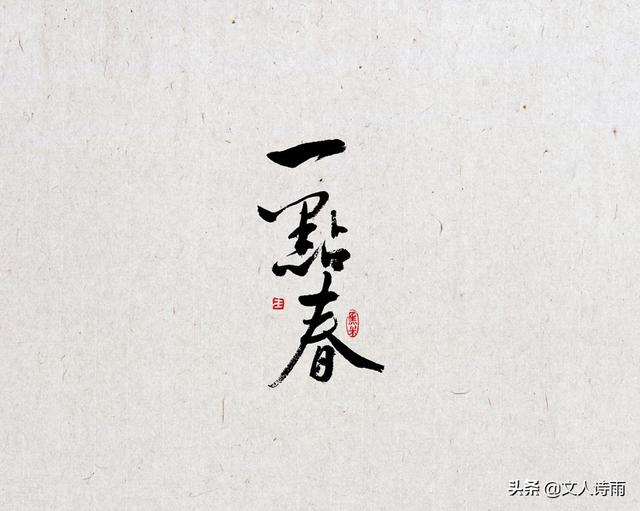 一點春
头条 @文人诗雨